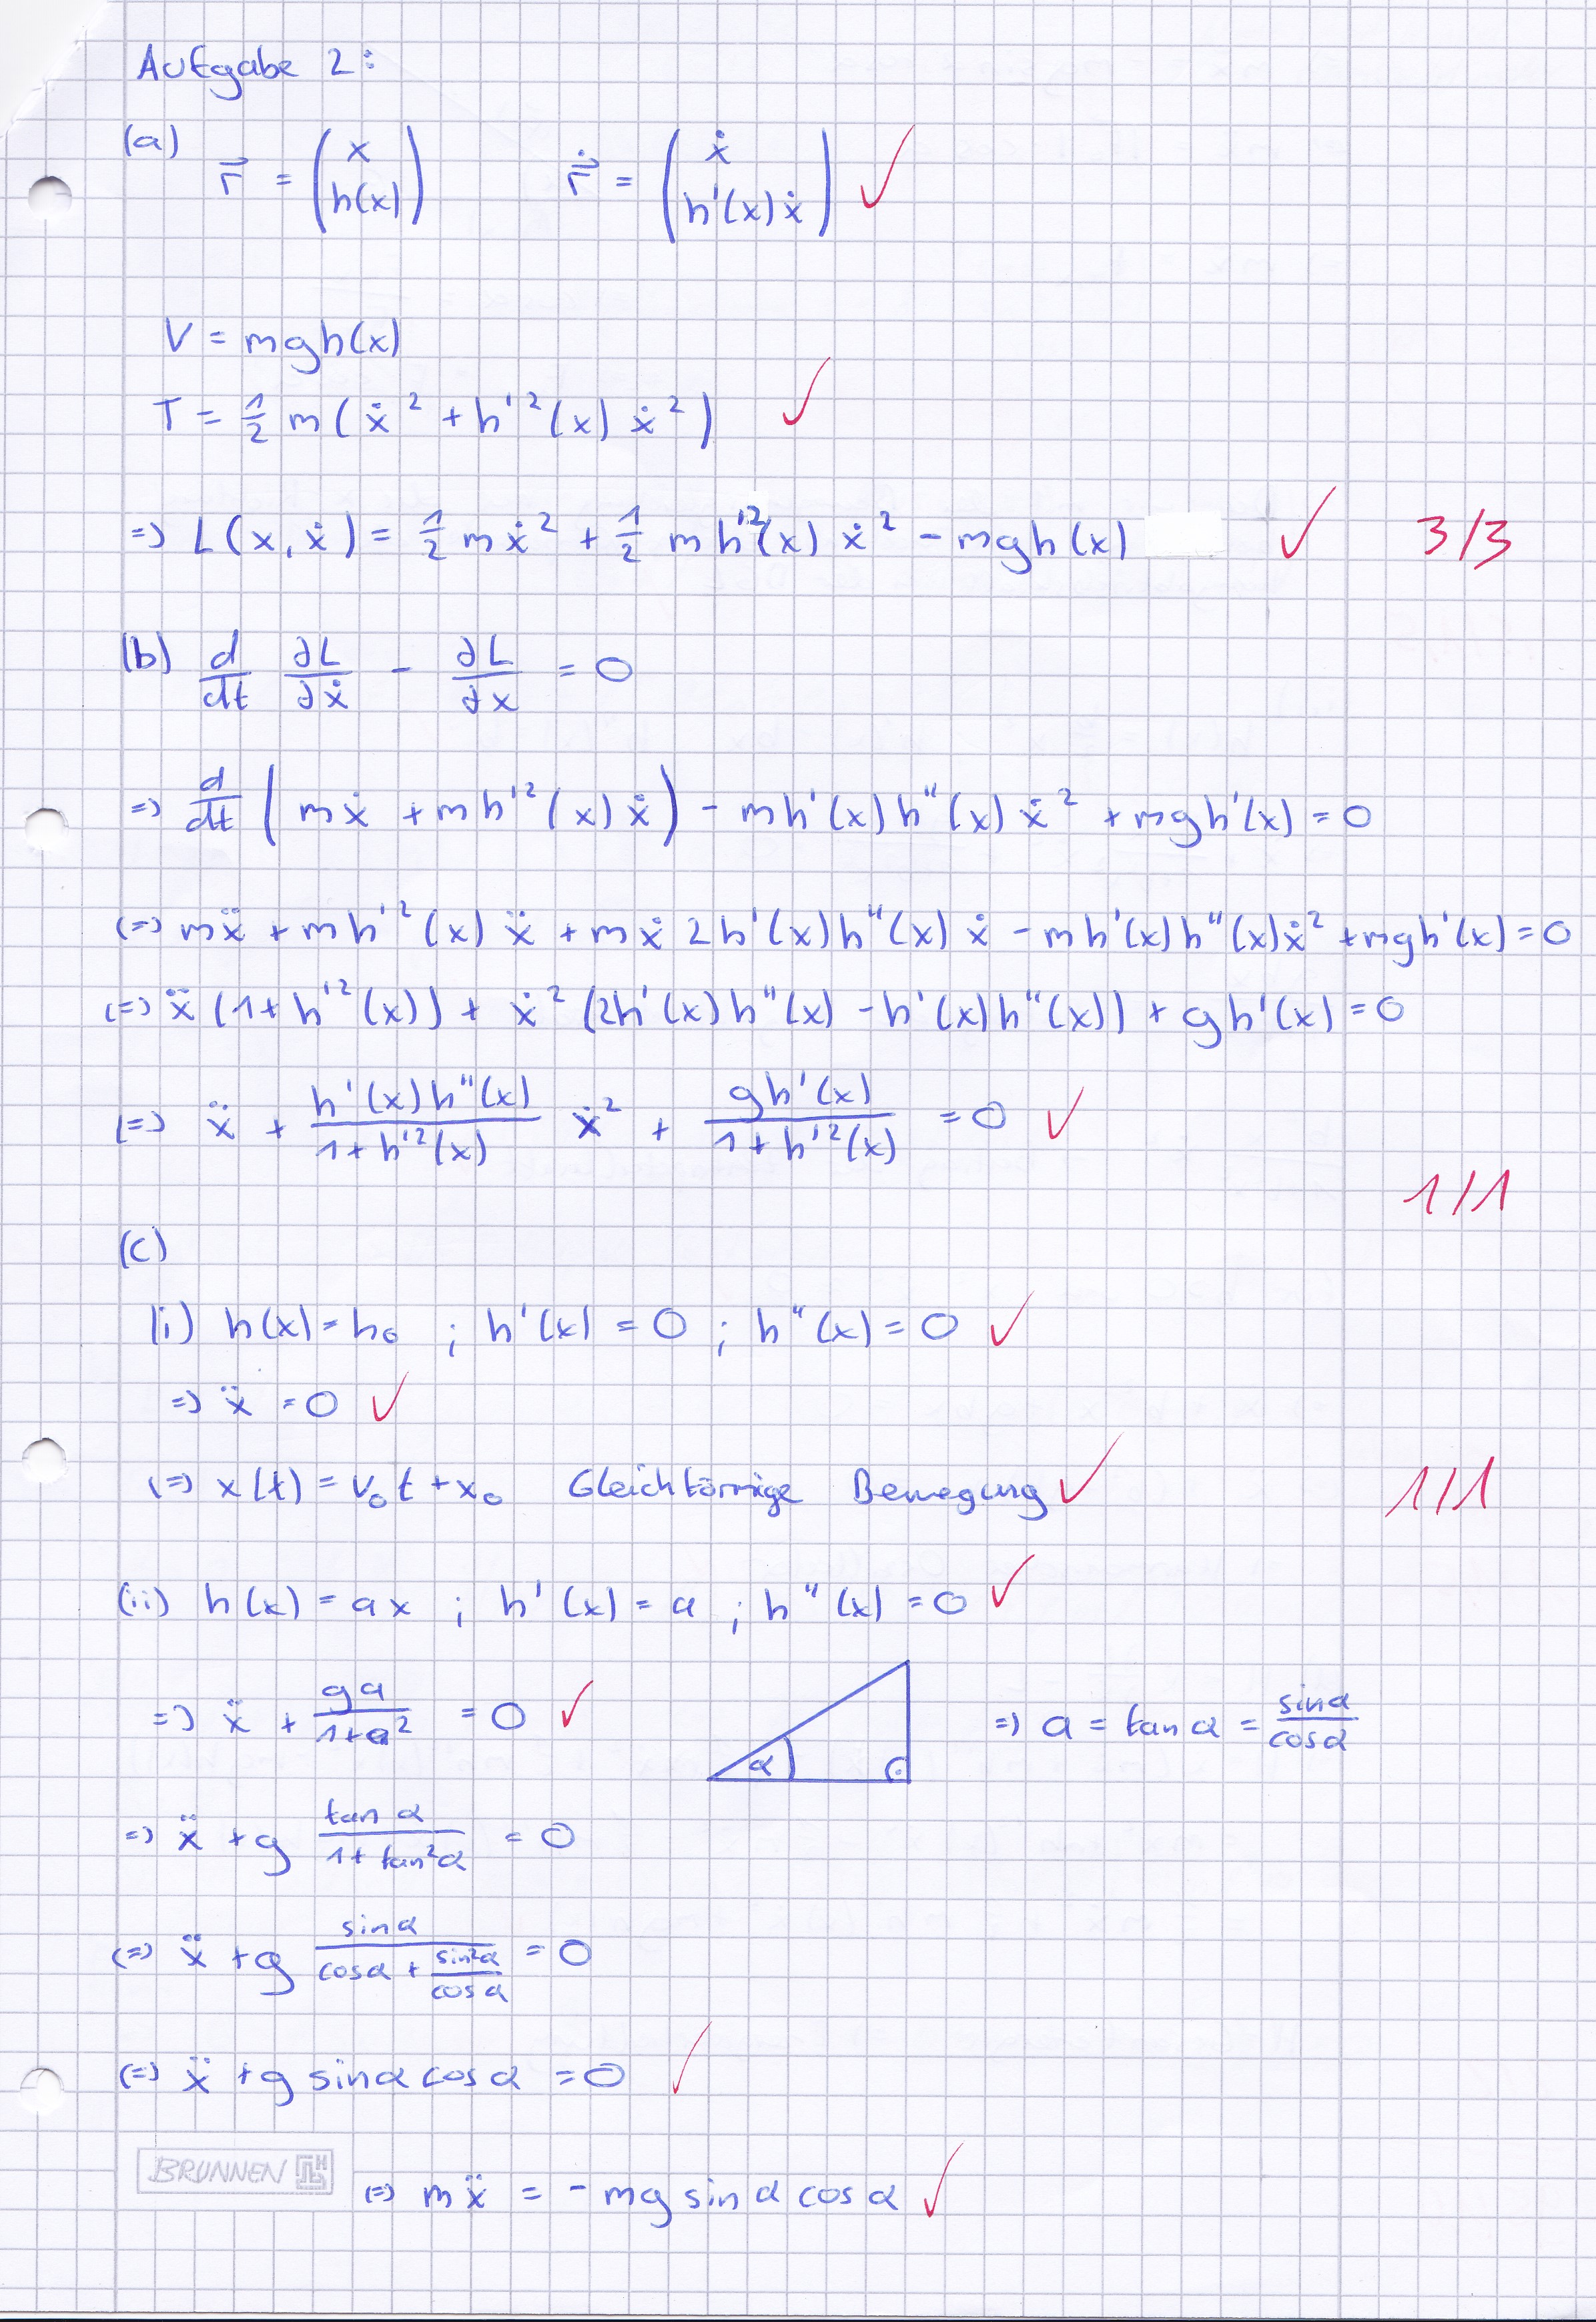 Aufgabe 2:
(a) r⃗ = (x h(x)) ṙ⃗ = (ẋ h'(x)ẋ) ✓
V = mgh(x)
T = 1/2 m(ẋ² + h'²(x) ẋ²) ✓
=> L(x, ẋ) = 1/2 mẋ² + 1/2 m h'²(x) ẋ² - mgh(x) ✓ 3/3
(b) d/dt ∂L/∂ẋ - ∂L/∂x = 0
=> d/dt (mẋ + mh'²(x)ẋ) - mh'(x)h''(x)ẋ² + mgh'(x) = 0
(=) mẍ + mh'²(x)ẍ + mẋ 2h'(x)h''(x)ẋ - mh'(x)h''(x)ẋ² + mgh'(x) = 0
(=) ẍ(1+h'²(x)) + ẋ²(2h'(x)h''(x) - h'(x)h''(x)) + gh'(x) = 0
(=) ẍ + h'(x)h''(x)/1+h'²(x) ẋ² + gh'(x)/1+h'²(x) = 0 ✓
1/1
(c)
(i) h(x) = h₀ ; h'(x) = 0 ; h''(x) = 0 ✓
=> ẍ = 0 ✓
(=> x(t) = v₀t + x₀ Gleichförmige Bewegung ✓ 1/1
(ii) h(x) = ax ; h'(x) = a ; h''(x) = 0 ✓
=> ẍ + ga/1+a² = 0 ✓ α => a = tan α = sinα/cosα
=> ẍ + g tan α/1+tan²α = 0
(=> ẍ + g sinα/cosα + sin²α/cosα = 0
(=> ẍ + g sinα cosα = 0 ✓
BRUNNEN (=> mẍ = - mg sin α cos α ✓